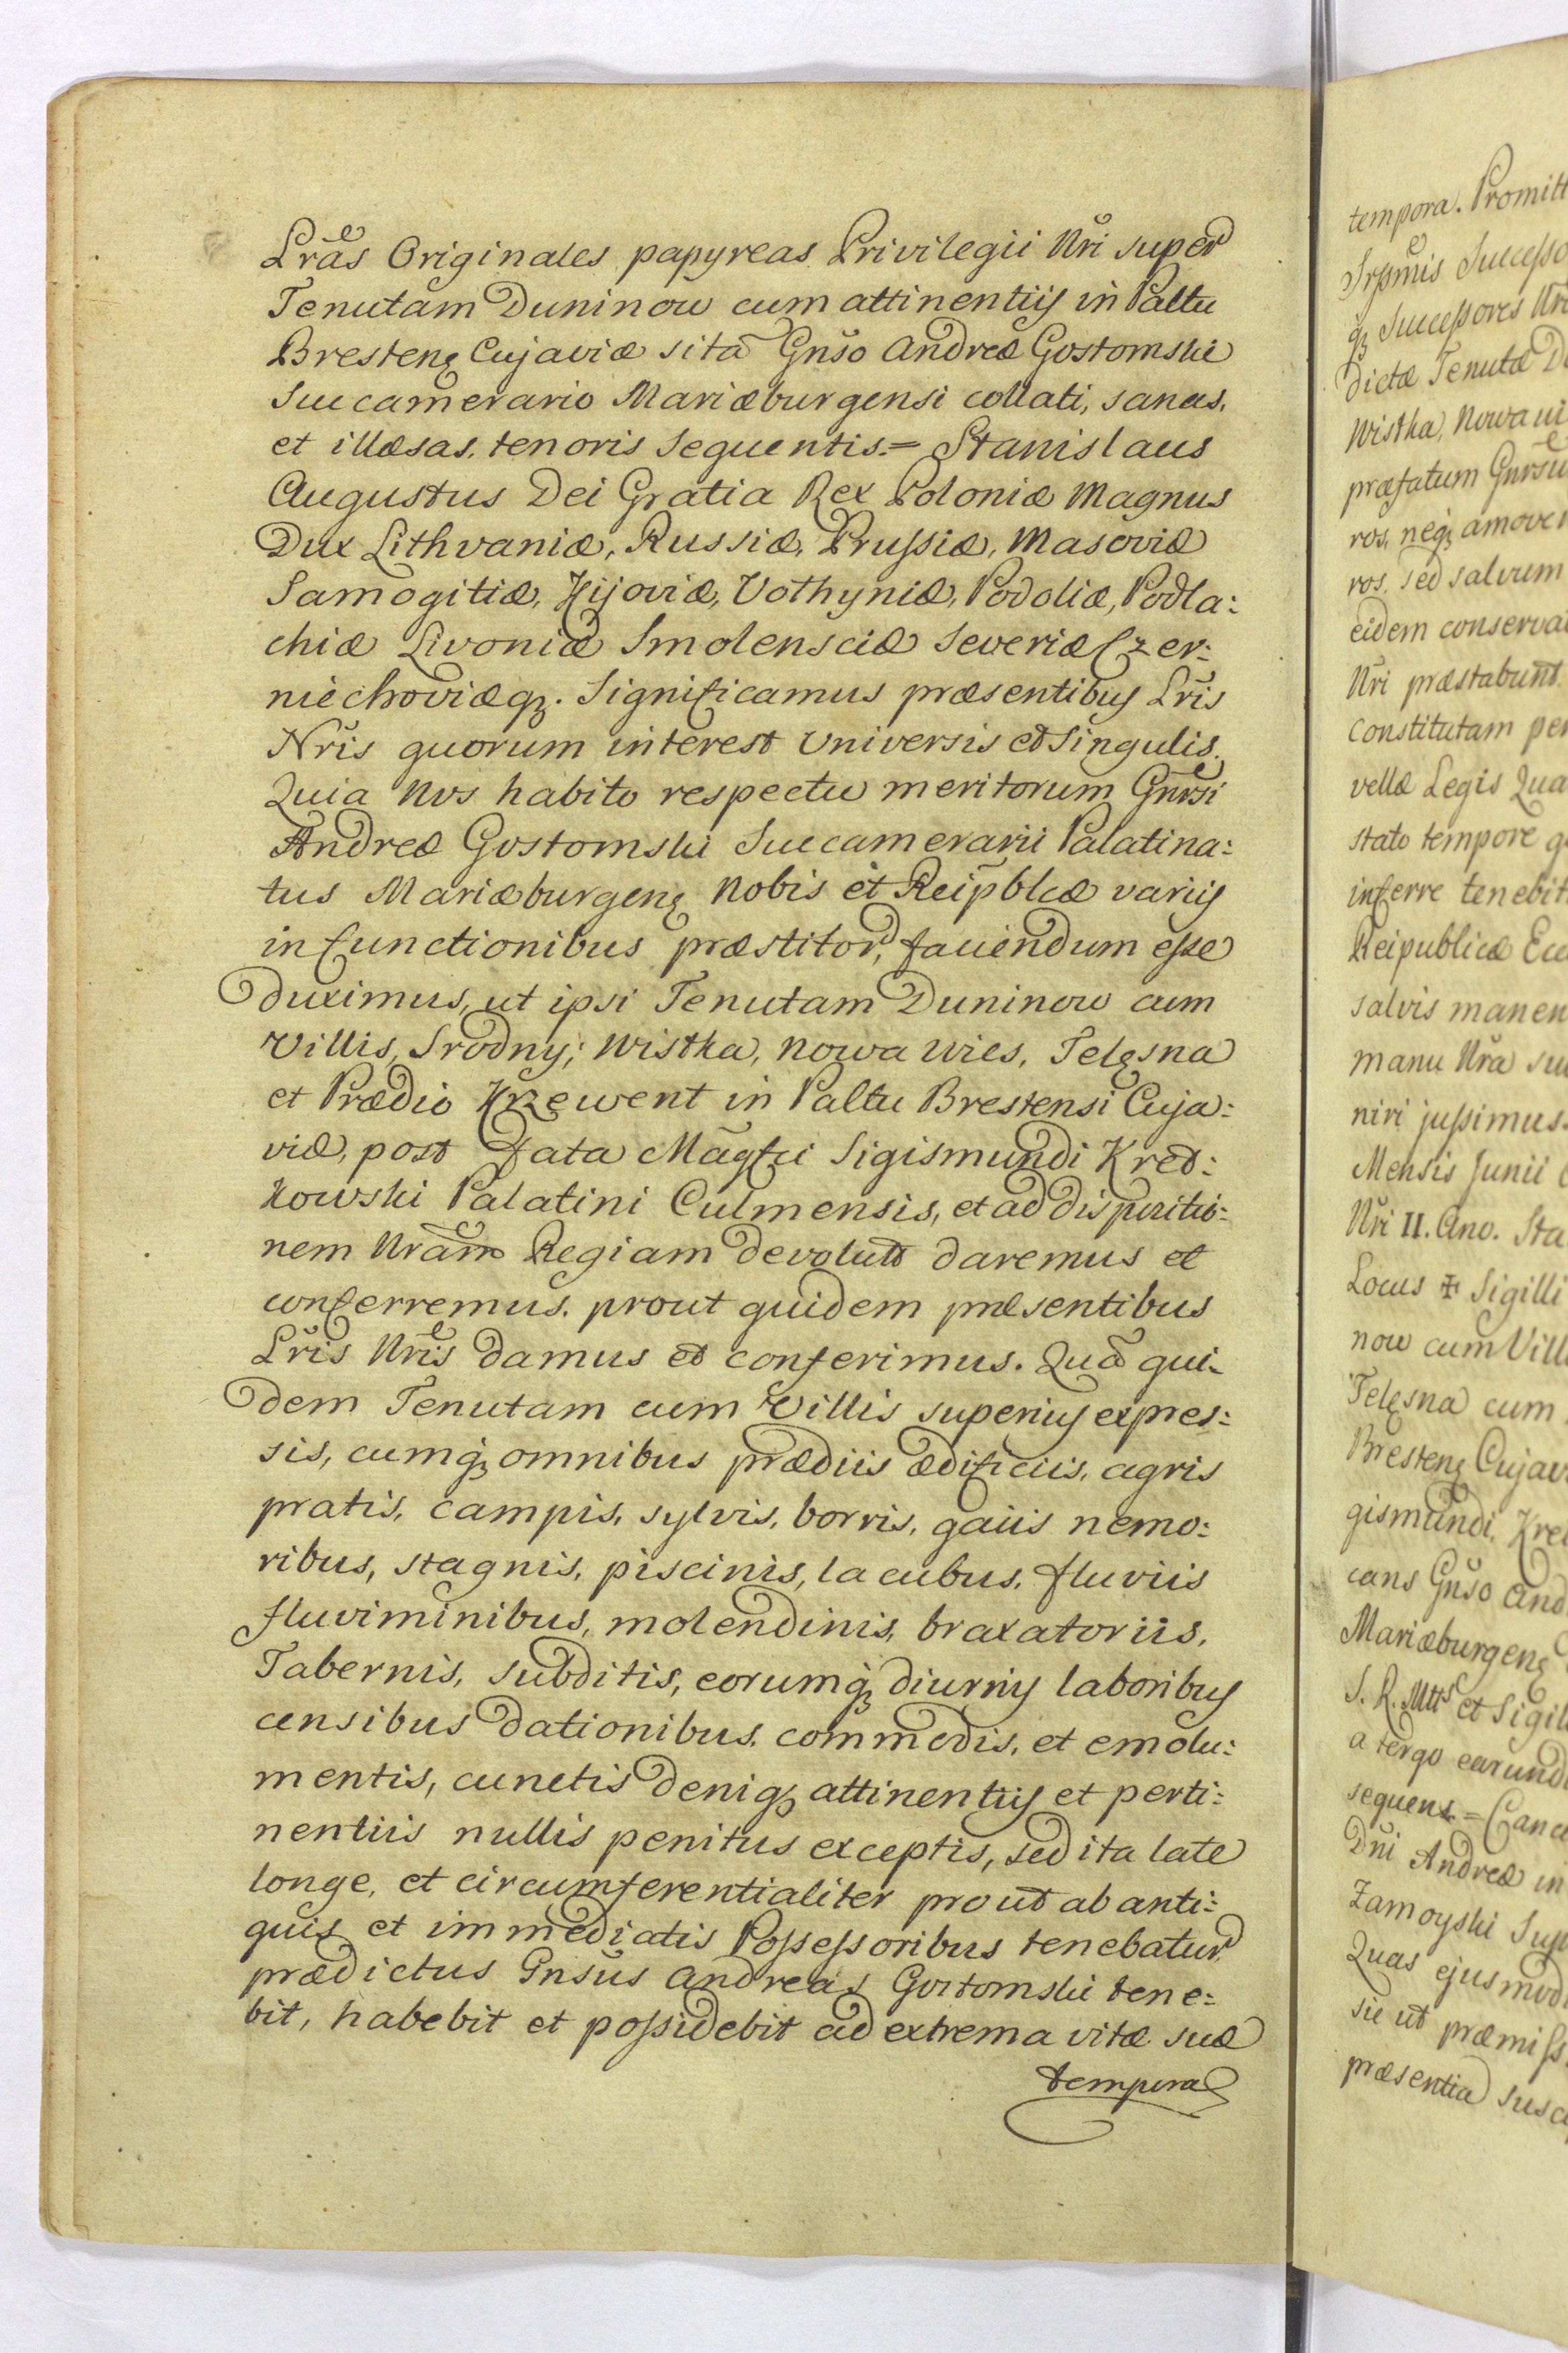 Lras Originales papyreas Privilegii Nri super
Tenutam Duninow cum attinentiis in Paltu
Bresteng Cujaviæ sitã Gnso Andreæ Gostomski
Succamerario Mariæburgensi collati, sanas,
et illæsas, tenoris sequentis.= Stanislaus
Augustus Dei Gratia Rex Poloniæ Magnus
Dux Lithvaniæ, Russiæ, Prussiæ, Masoviæ
Samogitiæ, Kijoviæ, Volhyniæ, Podoliæ, Podla:
chiæ Livoniæ Smolensciæ Severiæ Czer:
niechoviæqz. Significamus præsentibus Lris
Nris quorum interest Universis et Singulis.
Quia Nos habito respectu meritorum Gnrsi
Andreæ Gostomski Succamerarii Palatina:
tus Mariæburgeng Nobis et Reipblcæ variis
in functionibus præstitor, faciendum esse
duximus, ut ipsi Tenutam Duninow cum
Villis, Srodny; Wistka, Nowa Wies, Telęsna
et Prædio Krzewent in Paltu Brestensi Cuja:
viæ, post Fata Magfci Sigismundi Kret:
kowski Palatini Culmensis, et ad dispositio:
nem Nram Regiam devolutã daremus et
conferremus, prout quidem præsentibus
Lris Nris damus et conferimus. Quã qui-
dem Tenutam cum Villis superius expres:
sis, cumqz omnibus prædiis ædificiis, agris
pratis, campis, sylvis, borris, gaiis nemo:
ribus, stagnis, piscinis, lacubus, fluviis
fluviminibus, molendinis, braxatoriis,
Tabernis, subditis, eorumqz diurnis laboribus
censibus dationibus, commodis, et emolu:
mentis, cunctis deniqz attinentiis et perti:
nentiis nullis penitus exceptis, sed ita late
longe, et circumferentialiter prout ab anti:
quis et immediatis Possessoribus tenebatur
prædictus Gnsus Andreas Gostomski tene:
bit, habebit et possidebit ad extrema vitæ suæ
tempora
tempora. Promitt
Successo
qz Successores Nri
dictæ Tenutæ Du
Wistka, Nowa wi
præfatum Gnrsu
ros, neqz amover
ros, sed salvum
eidem conserva
Nri præstabunt.
Constitutam per
vellæ Legis Qua
stato tempore q
inferre tenebit
Reipublicæ Ecc
salvis manen
manu Nra su
niri jussimus.
Mensis Junii
Nri II. Ano. Sta
Locus ✠ Sigilli
now cum Vill
Telęsna cum
Bresteng Cujav
gismundi Kre
cans Gnso And
Mariæburgeng
S. R. Mtts et Sigil
a tergo earund
sequens.= Cance
Dni Andreæ in
Zamoyski Sup
Quas ejusmod
sic ut præmiss
præsentia susc